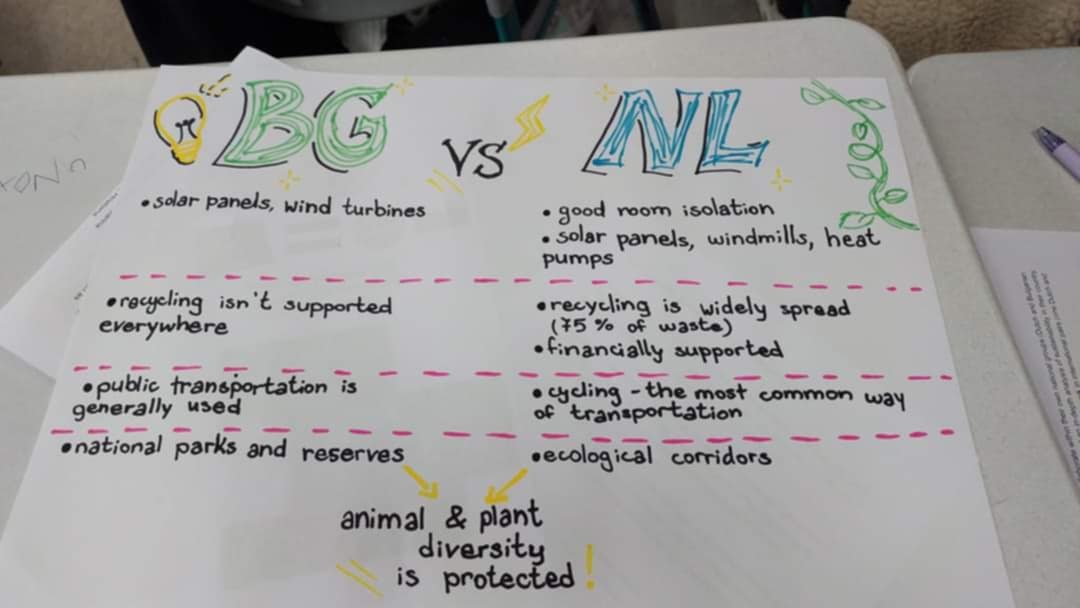 BG VS NL
• solar panels, wind turbines
• good room isolation
• solar panels, windmills, heat
pumps
• recycling isn't supported
everywhere
• recycling is widely spread
(75% of waste)
• financially supported
• public transportation is
generally used
• cycling - the most common way
of transportation
• national parks and reserves
• ecological corridors
animal & plant
diversity
is protected!